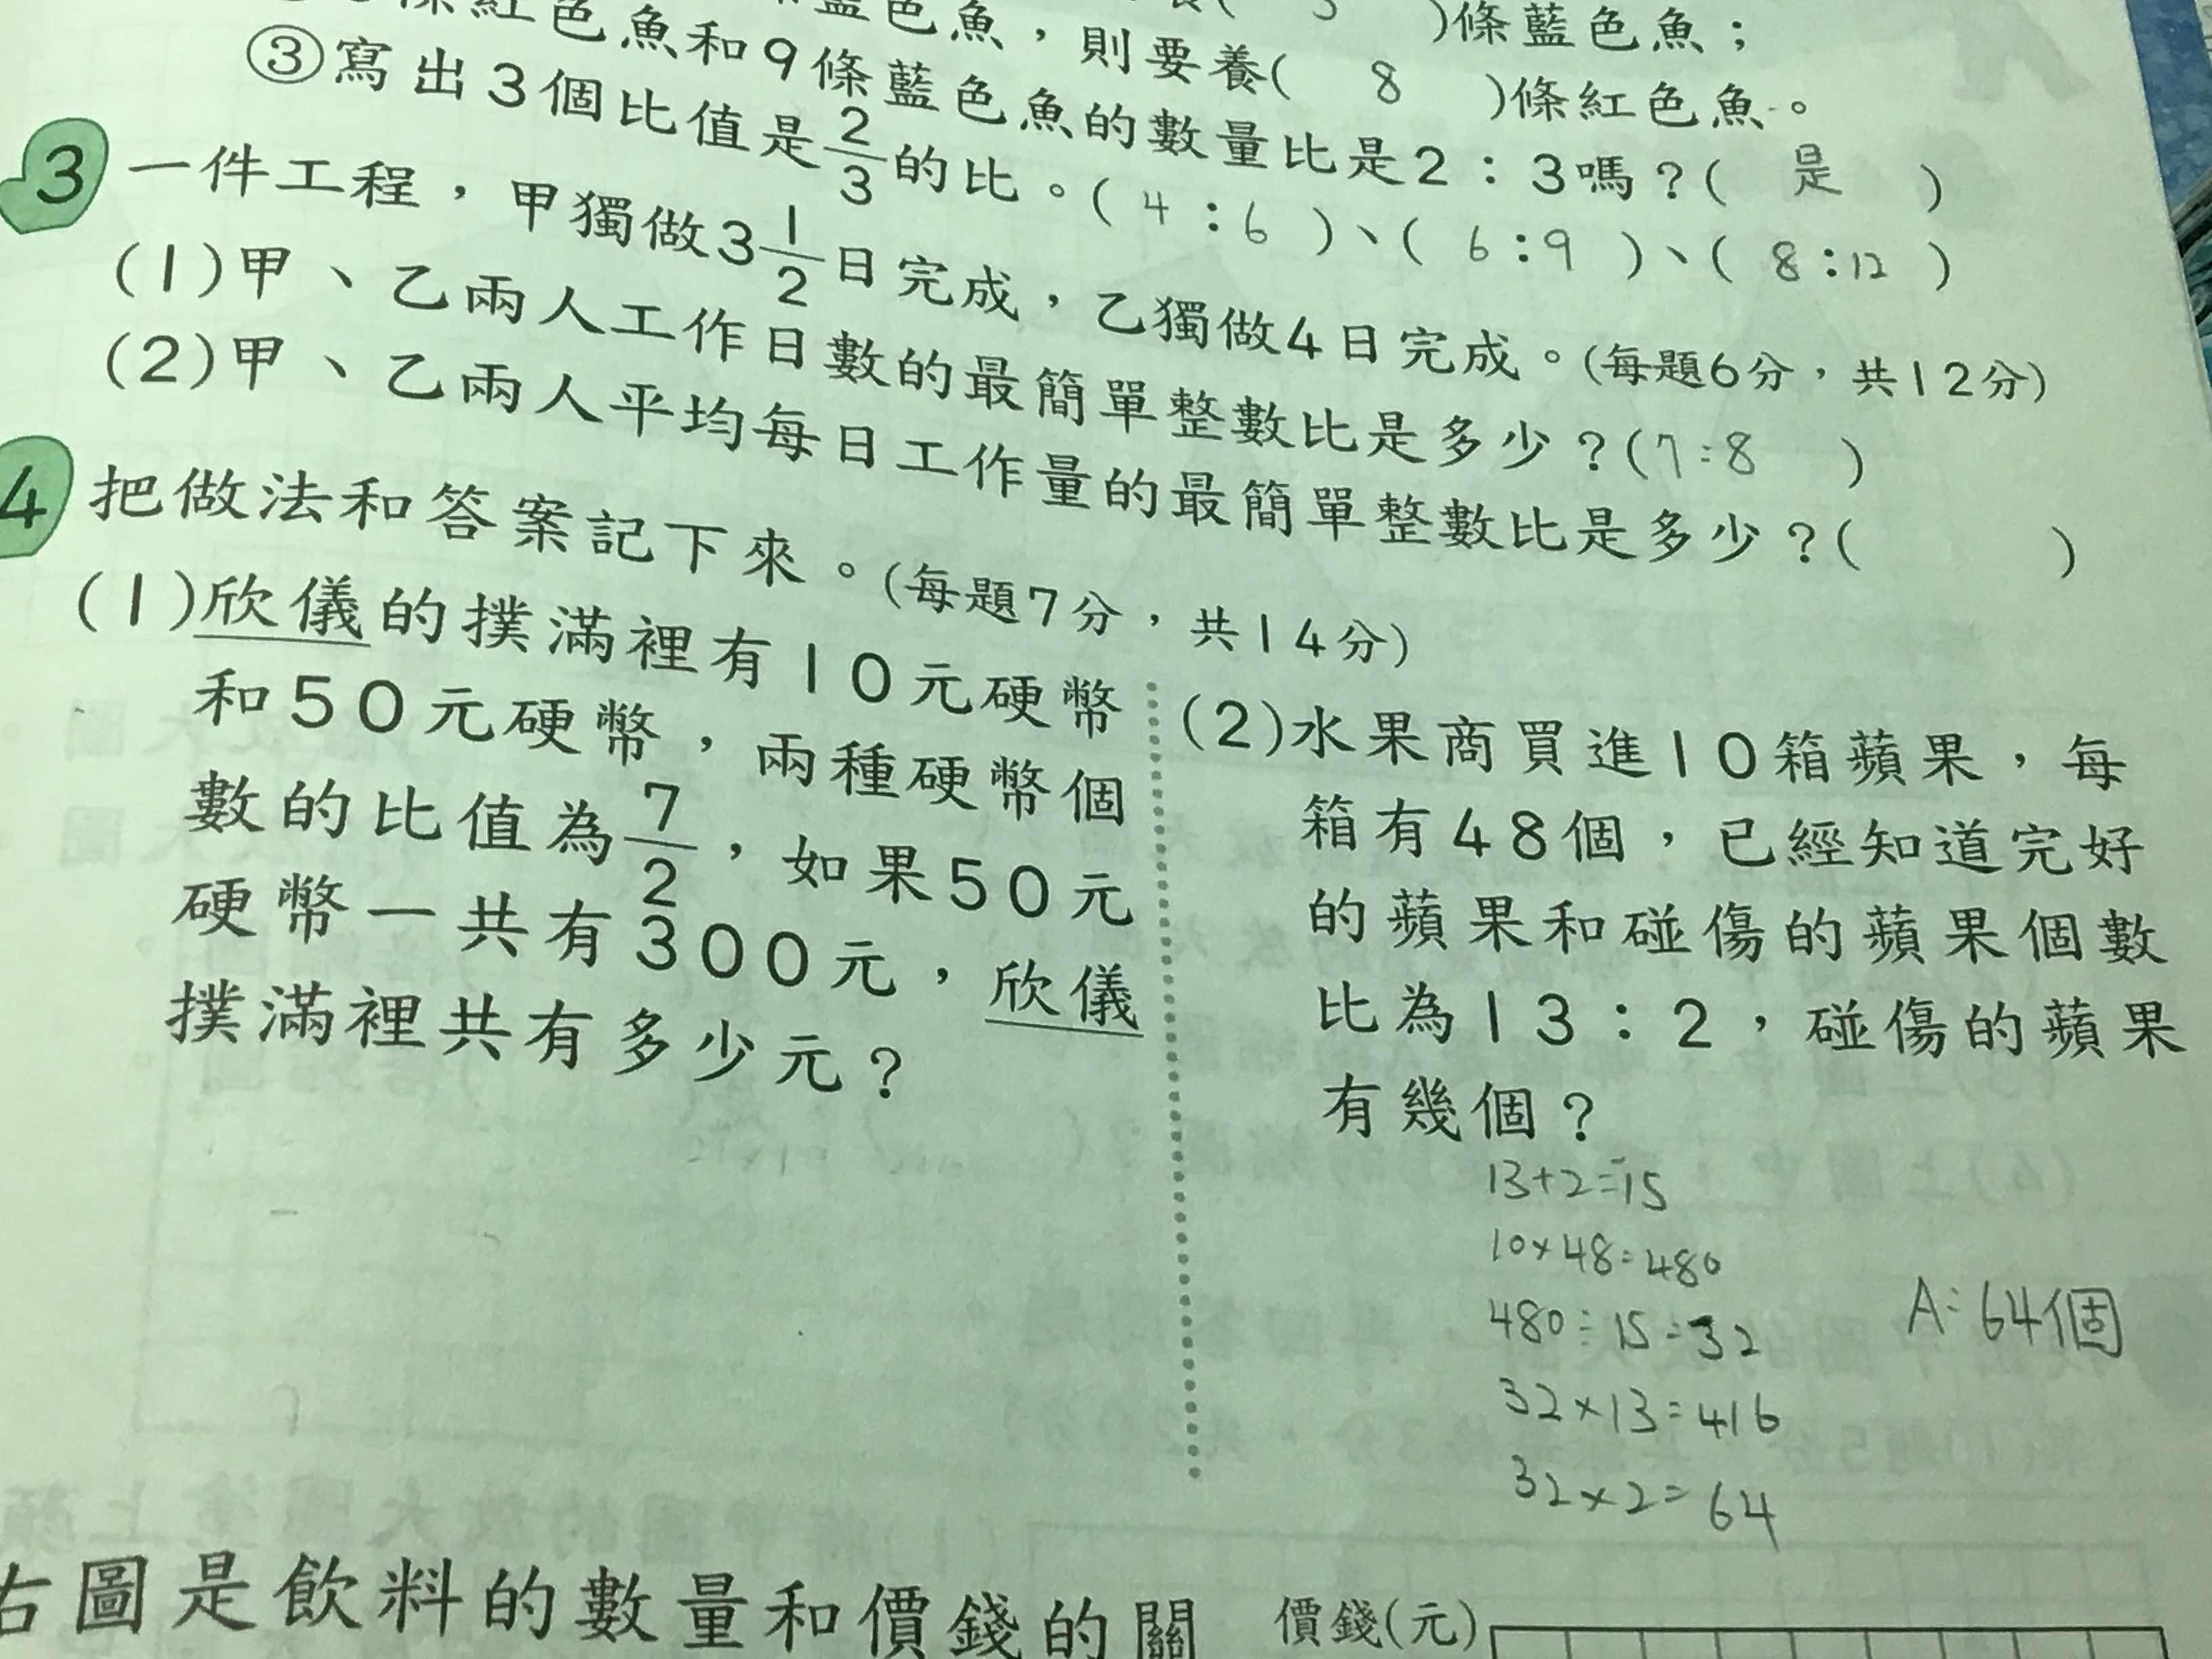 條紅色魚和9條藍色魚的數量比是2:3嗎?( 是 )
藍色魚,則要養( 8 )條紅色魚。
)條藍色魚;
③寫出3個比值是2/3的比。( 4:6 )、( 6:9 )、( 8:12 )
3 一件工程,甲獨做3 1/2日完成,乙獨做4日完成。(每題6分,共12分)
(1)甲、乙兩人工作日數的最簡單整數比是多少?(7:8 )
(2)甲、乙兩人平均每日工作量的最簡單整數比是多少?( )
4 把做法和答案記下來。(每題7分,共14分)
(1)欣儀的撲滿裡有10元硬幣
和50元硬幣,兩種硬幣個
數的比值為7/2,如果50元
硬幣一共有300元,欣儀
撲滿裡共有多少元?
(2)水果商買進10箱蘋果,每
箱有48個,已經知道完好
的蘋果和碰傷的蘋果個數
比為13:2,碰傷的蘋果
有幾個?
13+2=15
10×48=480
480÷15=32
32×13=416
32×2=64
A:64個
右圖是飲料的數量和價錢的關
價錢(元)